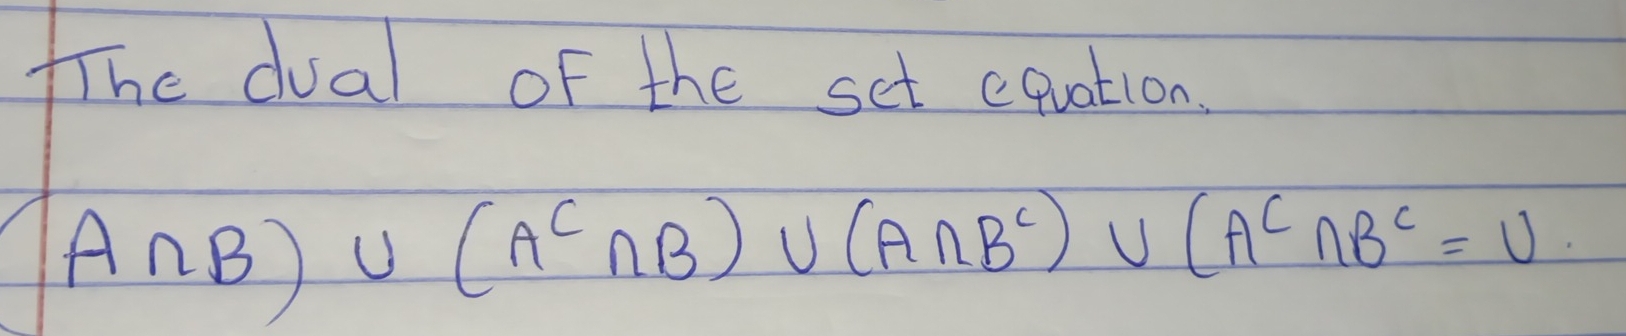 The dual of the set equation.
(A ∩ B) ∪ (Aᶜ ∩ B) ∪ (A ∩ Bᶜ) ∪ (Aᶜ ∩ Bᶜ = U.